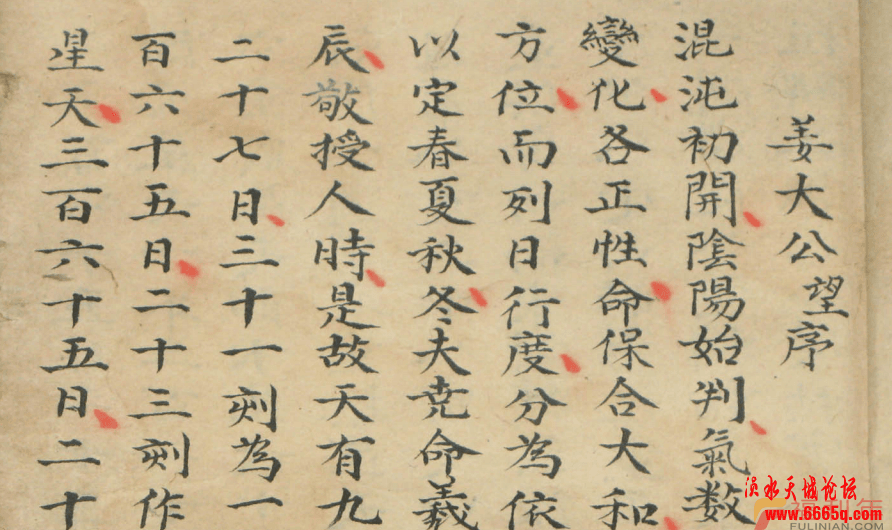 姜大公望序
混沌初開陰陽始判氣数
變化各正性命保合大和
方位而列日行度分為依
以定春夏秋冬夫尭命羲
辰敬授人時是故天有九
二十七日三十一刻為一
百六十五日二十三刻作
星天三百六十五日二十
涢水天城论坛
www.6665q.com
FULINIAN.COM